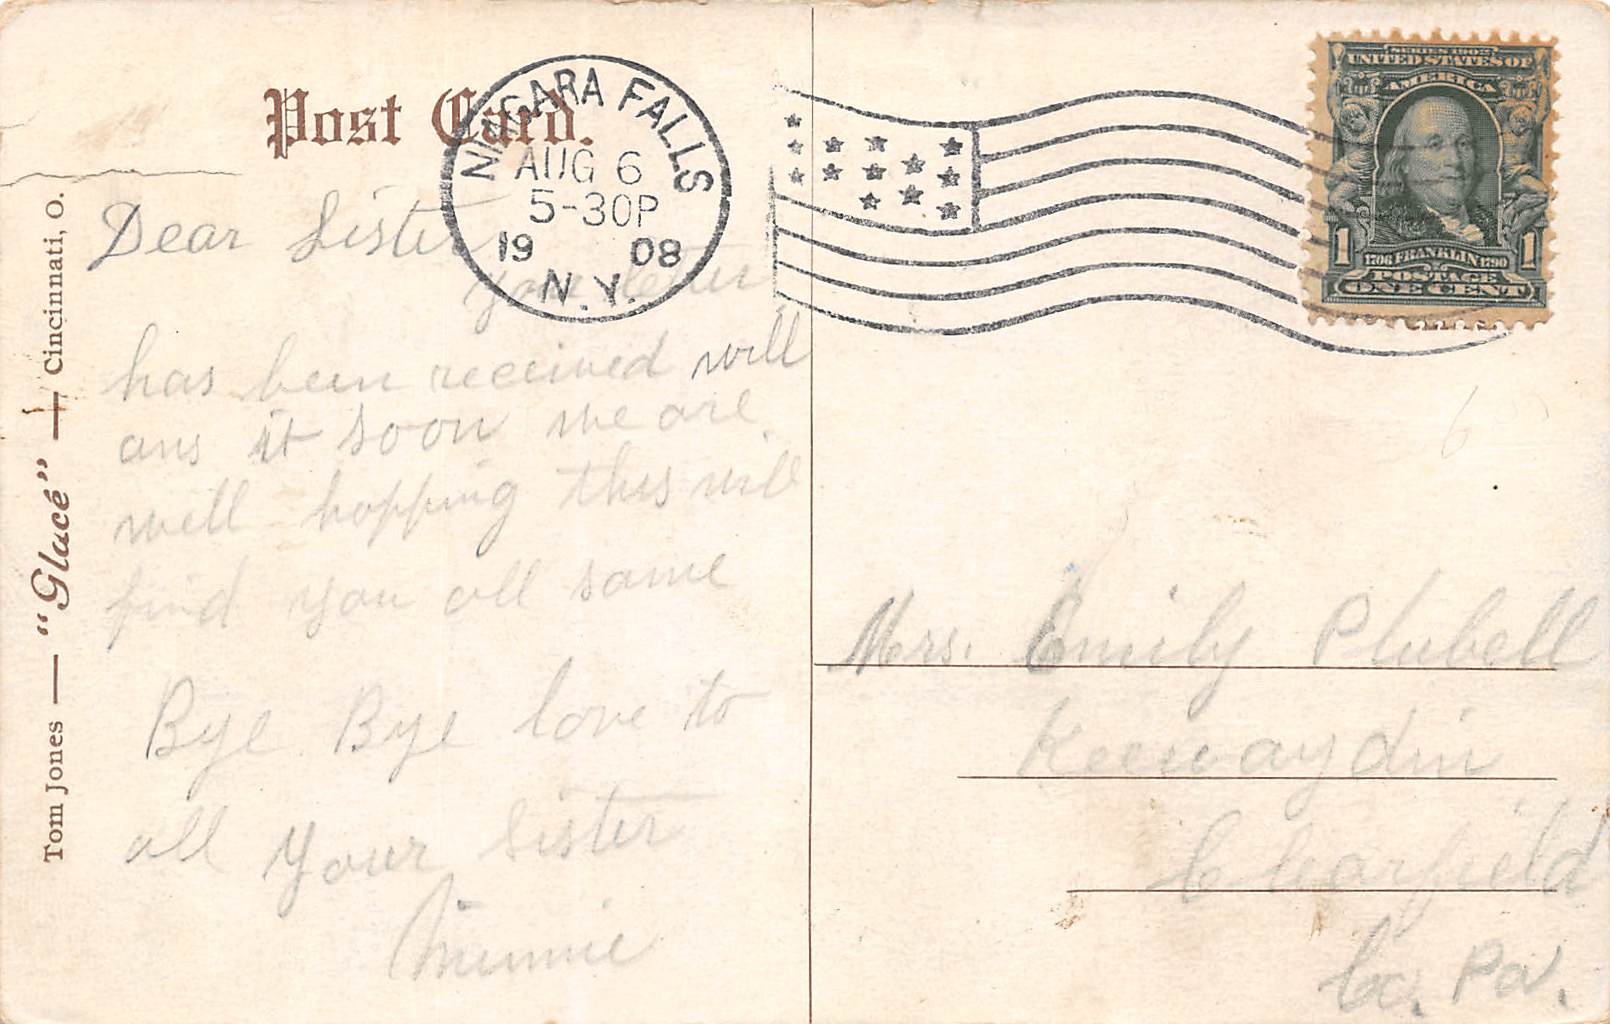 Post Card.
NIAGARA FALLS
AUG 6
5-30P
19 08
N.Y.
SERIES 1902
UNITED STATES OF
AMERICA
1 1
1706 FRANKLIN 1790
POSTAGE
ONE CENT
Tom Jones — "Glacé" — Cincinnati, O.
Dear Sister
your letter
has been received will
ans it soon we are
well hopping this will
find you all same
Bye Bye love to
all your Sister
Minnie
Mrs. Emily Plubell
Keewaydin
Clearfield
Co. Pa.